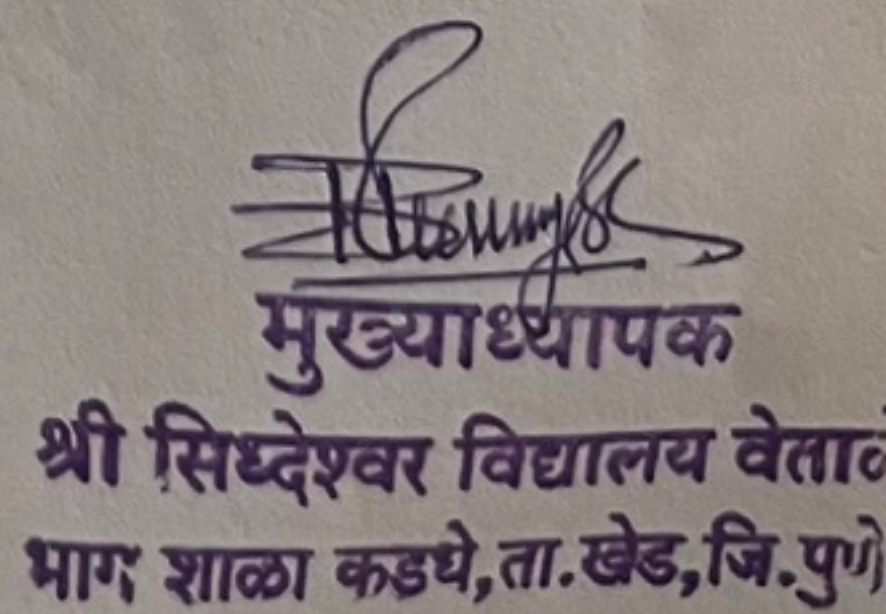 मुख्याध्यापक
श्री सिध्देश्वर विद्यालय वेताळे
भाग शाळा कडधे, ता. खेड, जि. पुणे